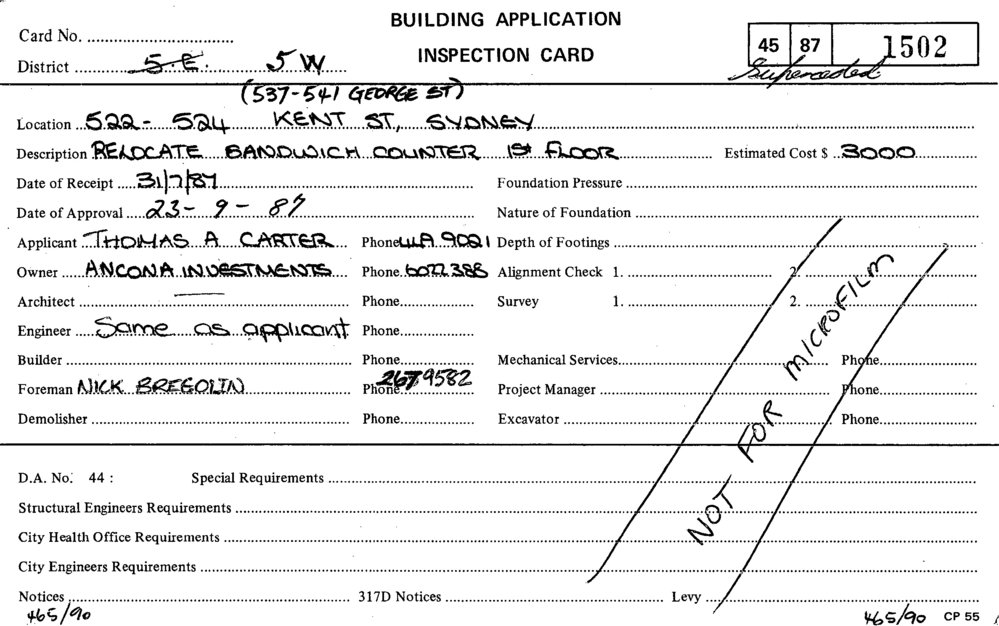 BUILDING APPLICATION
INSPECTION CARD
Card No.
District 5.E. 5 W
45 87 1502
Superceeded.
(537-541 GEORGE ST)
Location 522- 524 KENT ST, SYDNEY
Description RELOCATE SANDWICH COUNTER 1st FLOOR Estimated Cost $ 3000
Date of Receipt 31/7/87 Foundation Pressure
Date of Approval 23- 9 - 87 Nature of Foundation
Applicant THOMAS A CARTER Phone 9021 Depth of Footings
Owner ANCONA INVESTMENTS Phone 6022388 Alignment Check 1. 2.
Architect Phone Survey 1. 2.
Engineer Same as applicant Phone
Builder Phone Mechanical Services Phone
Foreman NICK BREGOLIN Phone 267 9582 Project Manager Phone
Demolisher Phone Excavator Phone
NOT FOR MICROFILM
D.A. No. 44 : Special Requirements
Structural Engineers Requirements
City Health Office Requirements
City Engineers Requirements
Notices 317D Notices Levy
465/90 465/90 CP 55